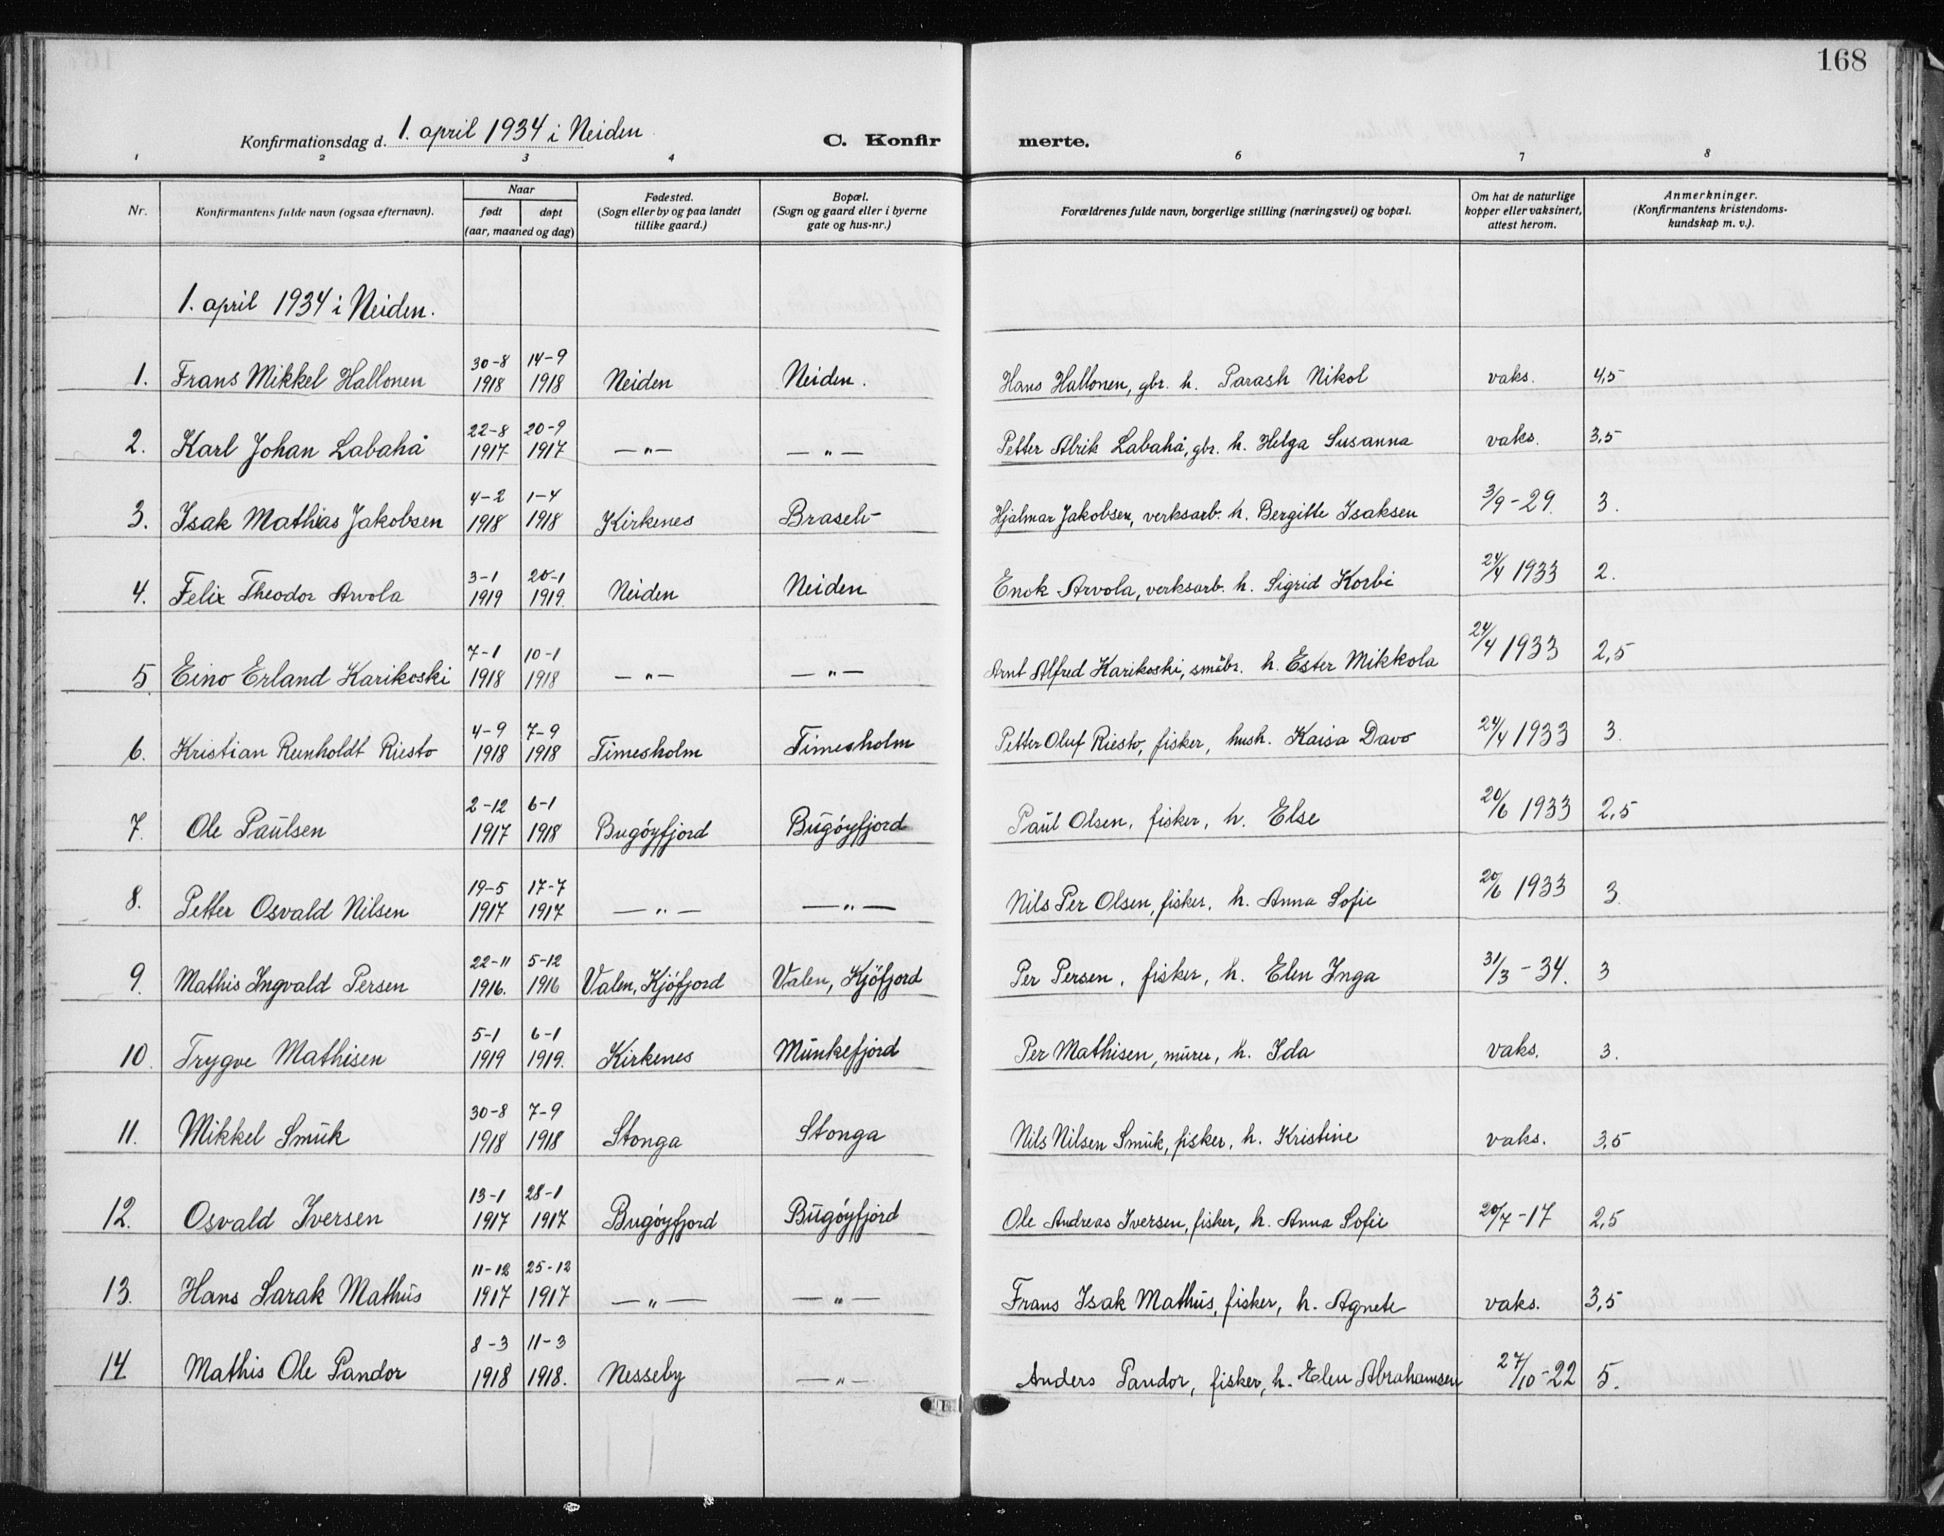 168
Konfirmationsdag d. 1. april 1934 i Neiden C. Konfir merte.
1 2 3 4 6 7 8
Nr. Konfirmantens fulde navn (ogsaa efternavn). Naar født døpt (aar, maaned og dag) Fødested. (Sogn eller by og paa landet tillike gaard.) Bopæl. (Sogn og gaard eller i byerne gate og hus-nr.) Forældrenes fulde navn, borgerlige stilling (næringsvei) og bopæl. Om hat de naturlige kopper eller vaksinert, attest herom. Anmerkninger. (Konfirmantens kristendomskundskap m. v.).
1. april 1934 i Neiden.
1. Frans Mikkel Hallonen 30-8 1918 14-9 1918 Neiden Neiden. Hans Hallonen, gbr. h. Parash Nikol vaks. 4,5
2. Karl Johan Labahå 22-8 1917 20-9 1917 —"— —"— Petter Alrik Labahå, gbr. h. Helga Susanna vaks. 3,5
3. Isak Mathias Jakobsen 4-2 1918 1-4 1918 Kirkenes Hjalmar Jakobsen, verksarb. h. Bergitte Isaksen 3/9-29. 3.
4. Felix Theodor Arvola 3-1 1919 20-1 1919. Neiden Neiden Enok Arvola, verksarb. h. Sigrid Korbi 24/4 1933 2.
5. Eino Erland Karikoski 7-1 1918 10-1 1918 —"— —"— Arnt Alfred Karikoski, småbr. h. Ester Mikkola 24/4 1933 2,5
6. Kristian Reinholdt Riesto 4-9 1918 7-9 1918 Timesholm Timesholm Petter Oluf Riesto, fisker, hush. Kaisa Davo 24/4 1933 3.
7. Ole Paulsen 2-12 1917 6-1 1918 Bugøyfjord Bugøyfjord Paul Olsen, fisker, h. Else 20/6 1933 2,5
8. Petter Osvald Nilsen 19-5 1917 17-7 1917 —"— —"— Nils Per Olsen, fisker, h. Anna Sofie 20/6 1933 3
9. Mathis Ingvald Persen 22-11 1916. 5-12 1916 Valen, Kjøfjord Valen, Kjøfjord Per Persen, fisker, h. Elen Inga 31/3-34. 3
10. Trygve Mathisen 5-1 1919 6-1 1919. Kirkenes Munkefjord Per Mathisen, murer, h. Ida vaks. 3.
11. Mikkel Smuk 30-8 1918 7-9 1918 Stonga Stonga Nils Nilsen Smuk, fisker, h. Kristine vaks. 3,5
12. Osvald Iversen 13-1 1917 28-1 1917 Bugøyfjord Bugøyfjord Ole Andreas Iversen, fisker, h. Anna Sofie 20/7-17 2,5
13. Hans Sarak Mathus 11-12 1917 25-12 1917 —"— —"— Frans Isak Mathus, fisker, h. Agnete vaks. 3,5
14 Mathis Ole Pandor 8-3 1918 11-3 1918. Nesseby —"— Anders Pandor, fisker, h. Elen Abrahamsen 27/10-22 5.